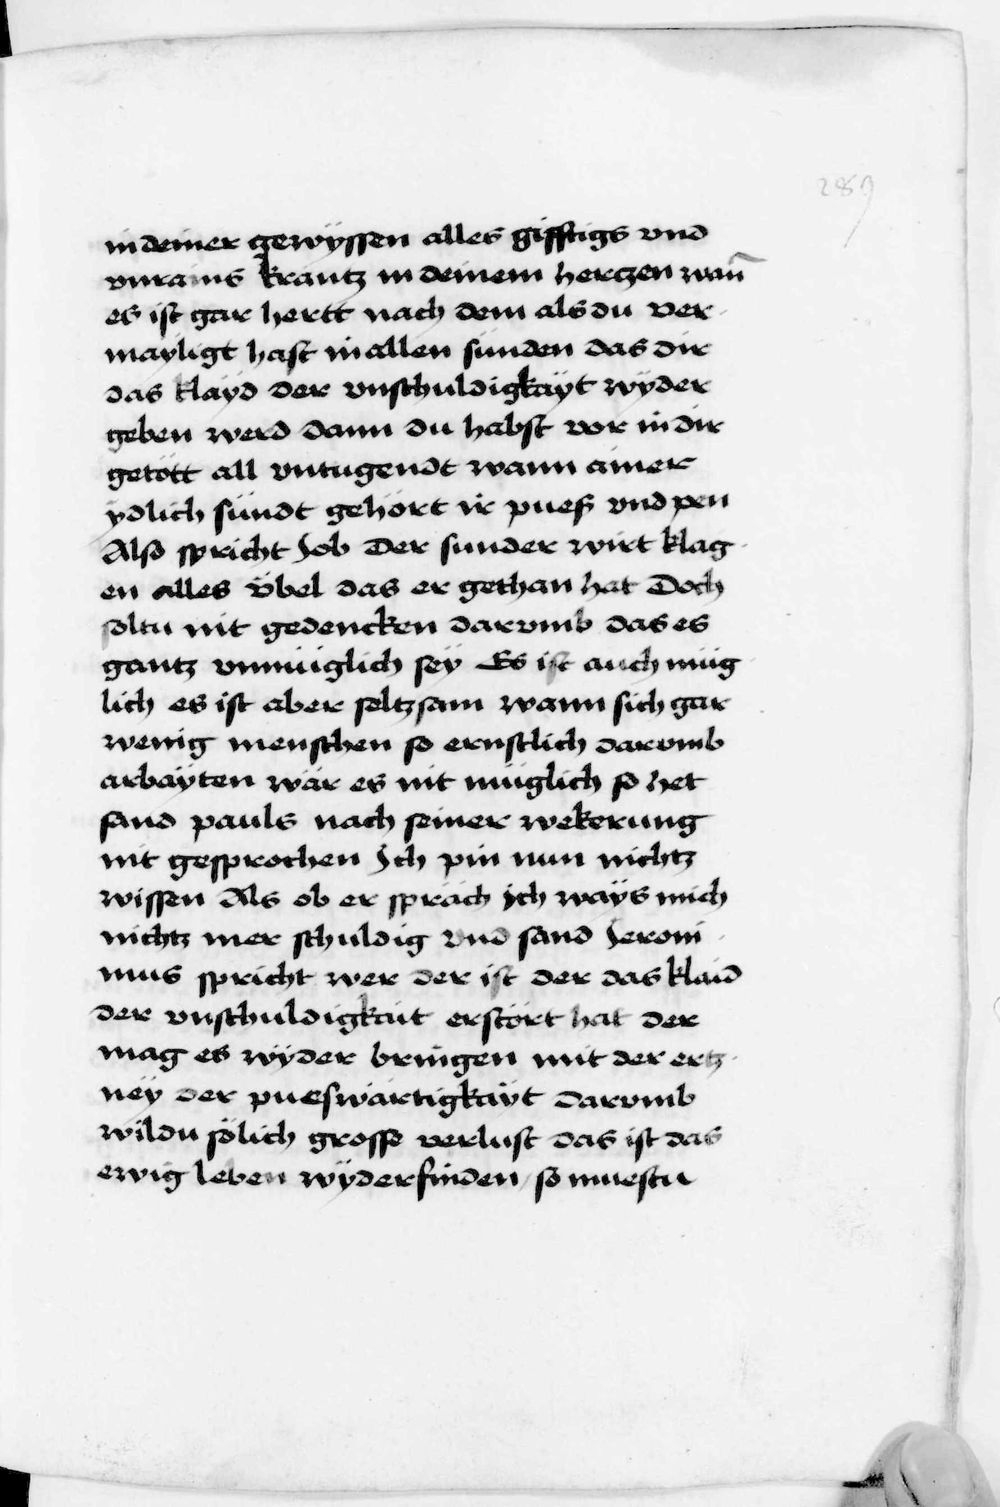 289
in deiner gewÿssen alles gifftigs vnd
vnrains krautz in deinem hertzen wan̄
es ist gar hertt nach dem als du ver
mayligt hast in allen sünden das dir
das klaÿd der vnschuldigkaÿt wÿder
geben werd dann du habst vor in dir
getött all vntugendt wann ainer
ÿdlich sündt gehört ir pueß vnd pen
Also spricht Job Der sunder wirt klag
en alles übel das er gethan hat Doch
soltu nit gedencken darvmb das es
gantz vnmüglich seÿ Es ist auch müg
lich es ist aber seltzsam wann sich gar
wenig menschen so ernstlich darvmb
arbaÿten wär es nit müglich so het
sand pauls nach seiner wekerung
nit gesprochen Ich pin nun nichtz
wissen Als ob er spräch ich waÿs mich
nichtz mer schuldig vnd sand Jeroni
mus spricht wer der ist der das klaid
der vnschuldigkait erstört hat der
mag es wÿder bringen mit der ertz
neÿ der pueswärtigkaÿt darvmb
wildu sölich grosse verlust das ist das
ewig leben wÿderfinden / so muestu